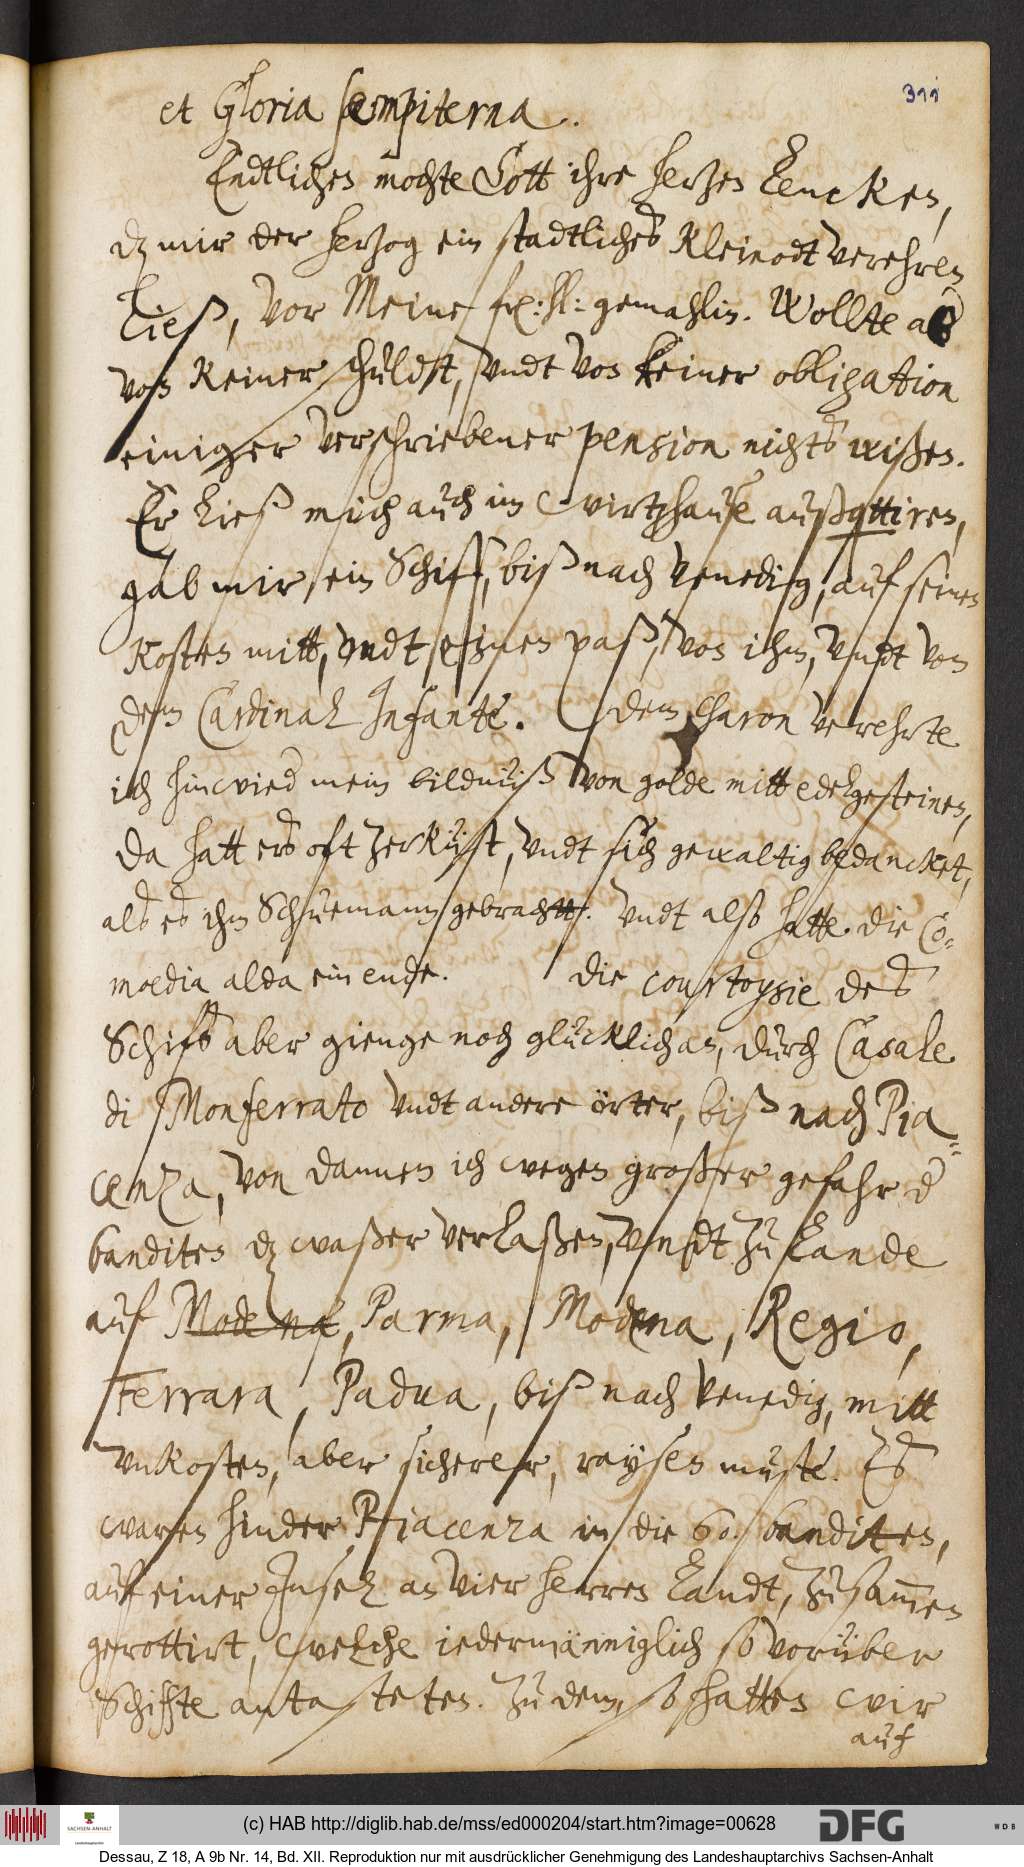 311
et Gloria sempiterna.
Endtlichen mochte Gott ihre hertzen Lencken,
dz mir der hertzog ein stadtliches Kleinodt verehren
Ließ, vor Meine fr: hl: gemahlin. Wollte aber
von Keiner schuldt, undt von keiner obligation
einiger verschriebener pension nichts wißen.
Er Ließ mich auch im wirtzhause außqttiren,
gab mir ein Schiff, biß nach Venedig, auf seinen
Kosten mitt, undt einen paß, von ihm, undt von
dem Cardinal Infante. dem Charon verehrte
ich hinwied mein bildnuiß von golde mitt edelgesteinen,
da hatt ers oft zerküst, undt sich gewaltig bedancket,
als es ihm Schuemann gebracht. Undt also hatte die Co-
moedia alda ein ende. die courtoysie des
Schifs aber gienge noch glücklich an, durch Casale
di Monferrato undt andere örter, biß nach Pia-
cenza, von dannen ich wegen großer gefahr d
banditen dz waßer verlaßen, undt zu Lande
auf Modena, Parma, Modena, Regio,
Ferrara, Padua, biß nach Venedig, mitt
unkosten, aber sicherer, raysen muste. Es
waren hinder Piacenza in die 60. banditen,
auf einer Insel an vier herren Landt, zusammen
gerottirt, welche iedermänniglich so vorüber
Schiffte antasteten. Zu dem, so hatten wir
auch
(c) HAB http://diglib.hab.de/mss/ed000204/start.htm?image=00628
SACHSEN-ANHALT
Landeshauptarchiv
DFG
WDB
Dessau, Z 18, A 9b Nr. 14, Bd. XII. Reproduktion nur mit ausdrücklicher Genehmigung des Landeshauptarchivs Sachsen-Anhalt